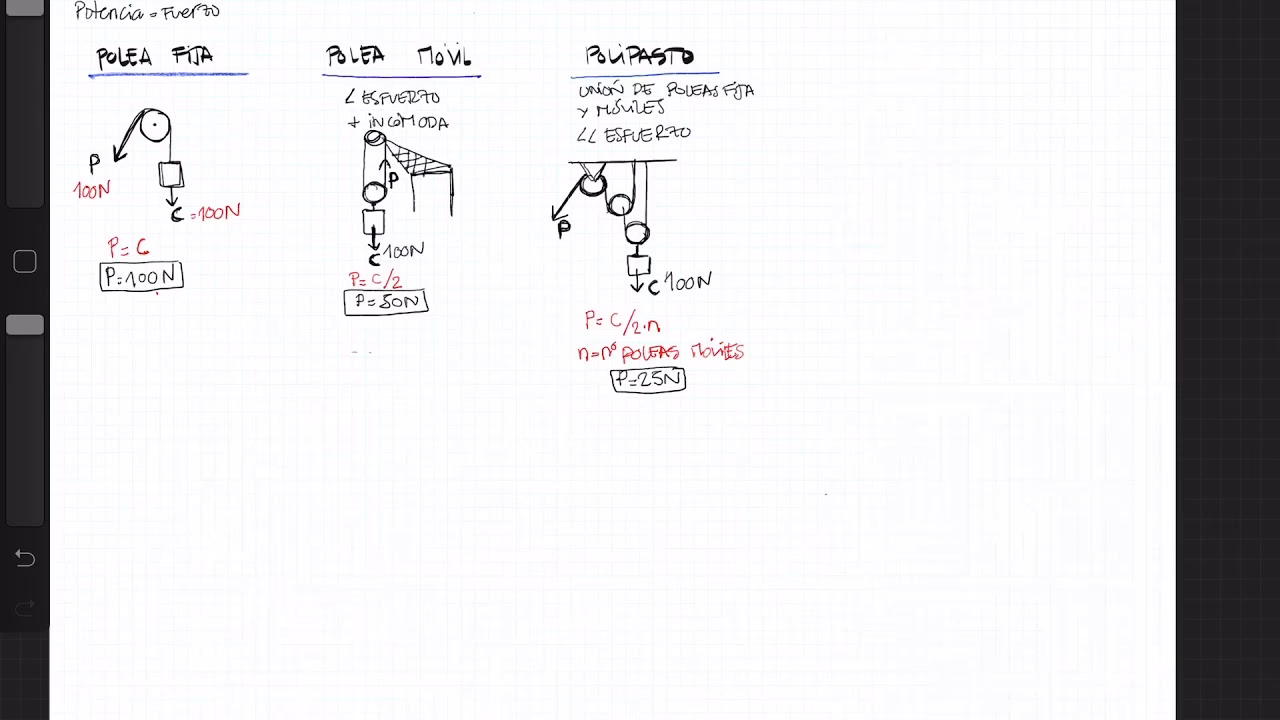 Potencia = Fuerzo
POLEA FIJA
P
100N
C = 100N
P = C
P = 100N
POLEA MÓVIL
< ESFUERZO
+ INCÓMODA
P
C 100N
P = C/2
P = 50N
POLIPASTO
UNIÓN DE POLEAS FIJA
Y MÓVILES
<< ESFUERZO
P
C 100N
P = C/2·n
n = nº POLEAS MÓVILES
P = 25N